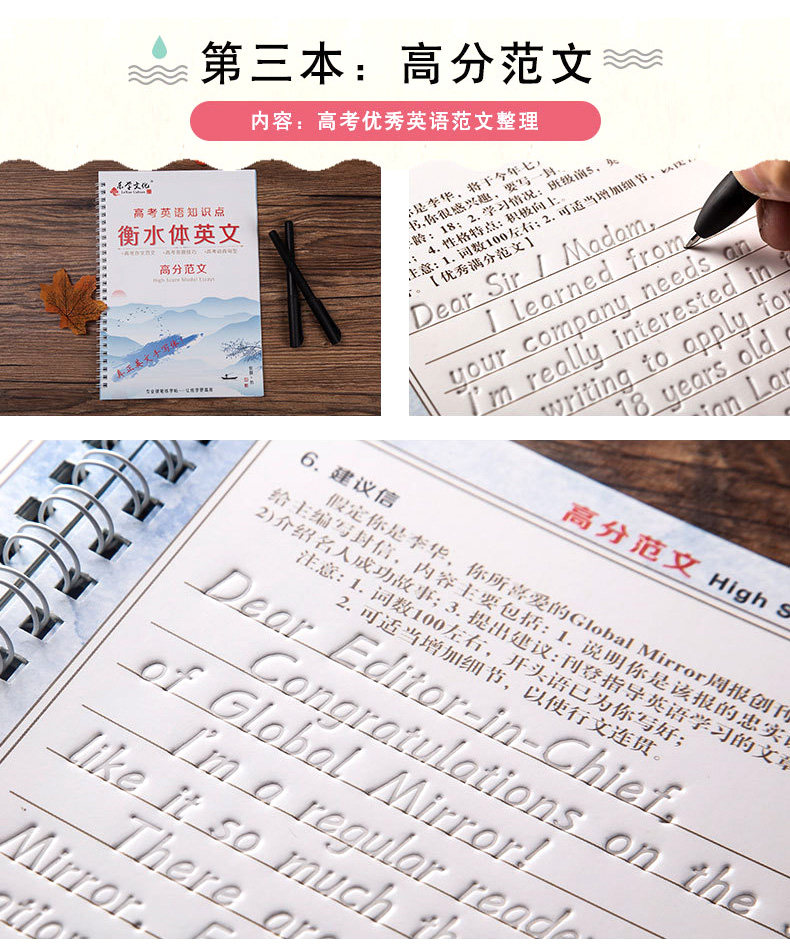 第三本：高分范文
内容：高考优秀英语范文整理
东学文化
高考英语知识点
衡水体英文
高分范文
High Score Model Essays
真正英文手写体
是李华，将于今年七
你很感兴趣，要写一封
龄：18；2.学习情况：班级前5，英
；4.性格特点：积极向上。
注意：1.词数100左右；2.可适当增加细节，以使行
【优秀满分范文】
Dear Sir / Madam,
I learned from
your company needs an
I'm really interested in
writing to apply for
18 years old
6. 建议信
高分范文 High S
假定你是李华，你所喜爱的Global Mirror周报创刊
给主编写封信，内容主要包括：1.说明你是该报的忠实
2)介绍名人成功故事；3.提出建议：刊登指导英语学习的文章
注意：1.词数100左右，开头语已为你写好；
2.可适当增加细节，以使行文连贯。
Dear Editor-in-Chief,
Congratulations on the
of Global Mirror!
I'm a regular reade
like it so much th
There are
Mirror.